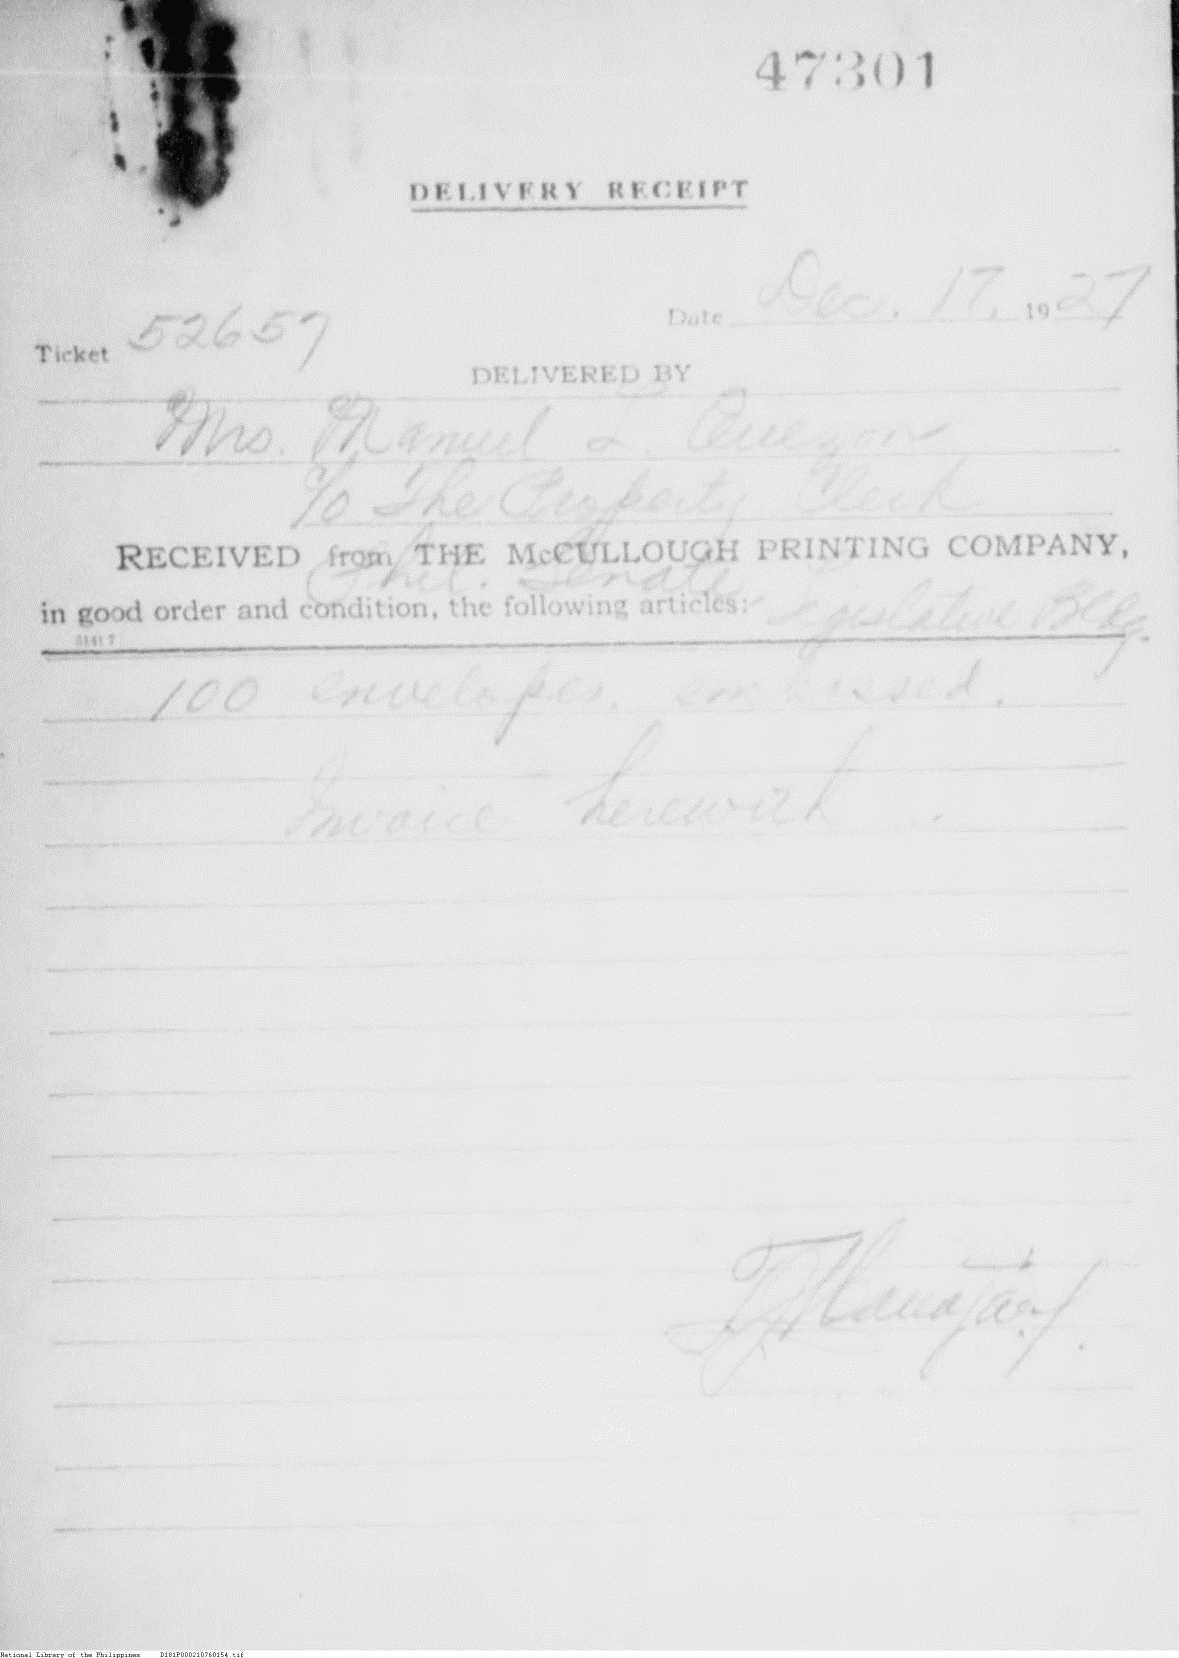 47301
DELIVERY RECEIPT
Date Dec. 17, 1927
Ticket 52657
DELIVERED BY
Mrs. Manuel L. Quezon
c/o The Property Clerk
RECEIVED from THE McCULLOUGH PRINTING COMPANY,
Phil. Senate Legislative Bldg.
in good order and condition, the following articles:
100 envelopes, embossed.
Invoice herewith.
National Library of the Philippines D181P000210760154.tif